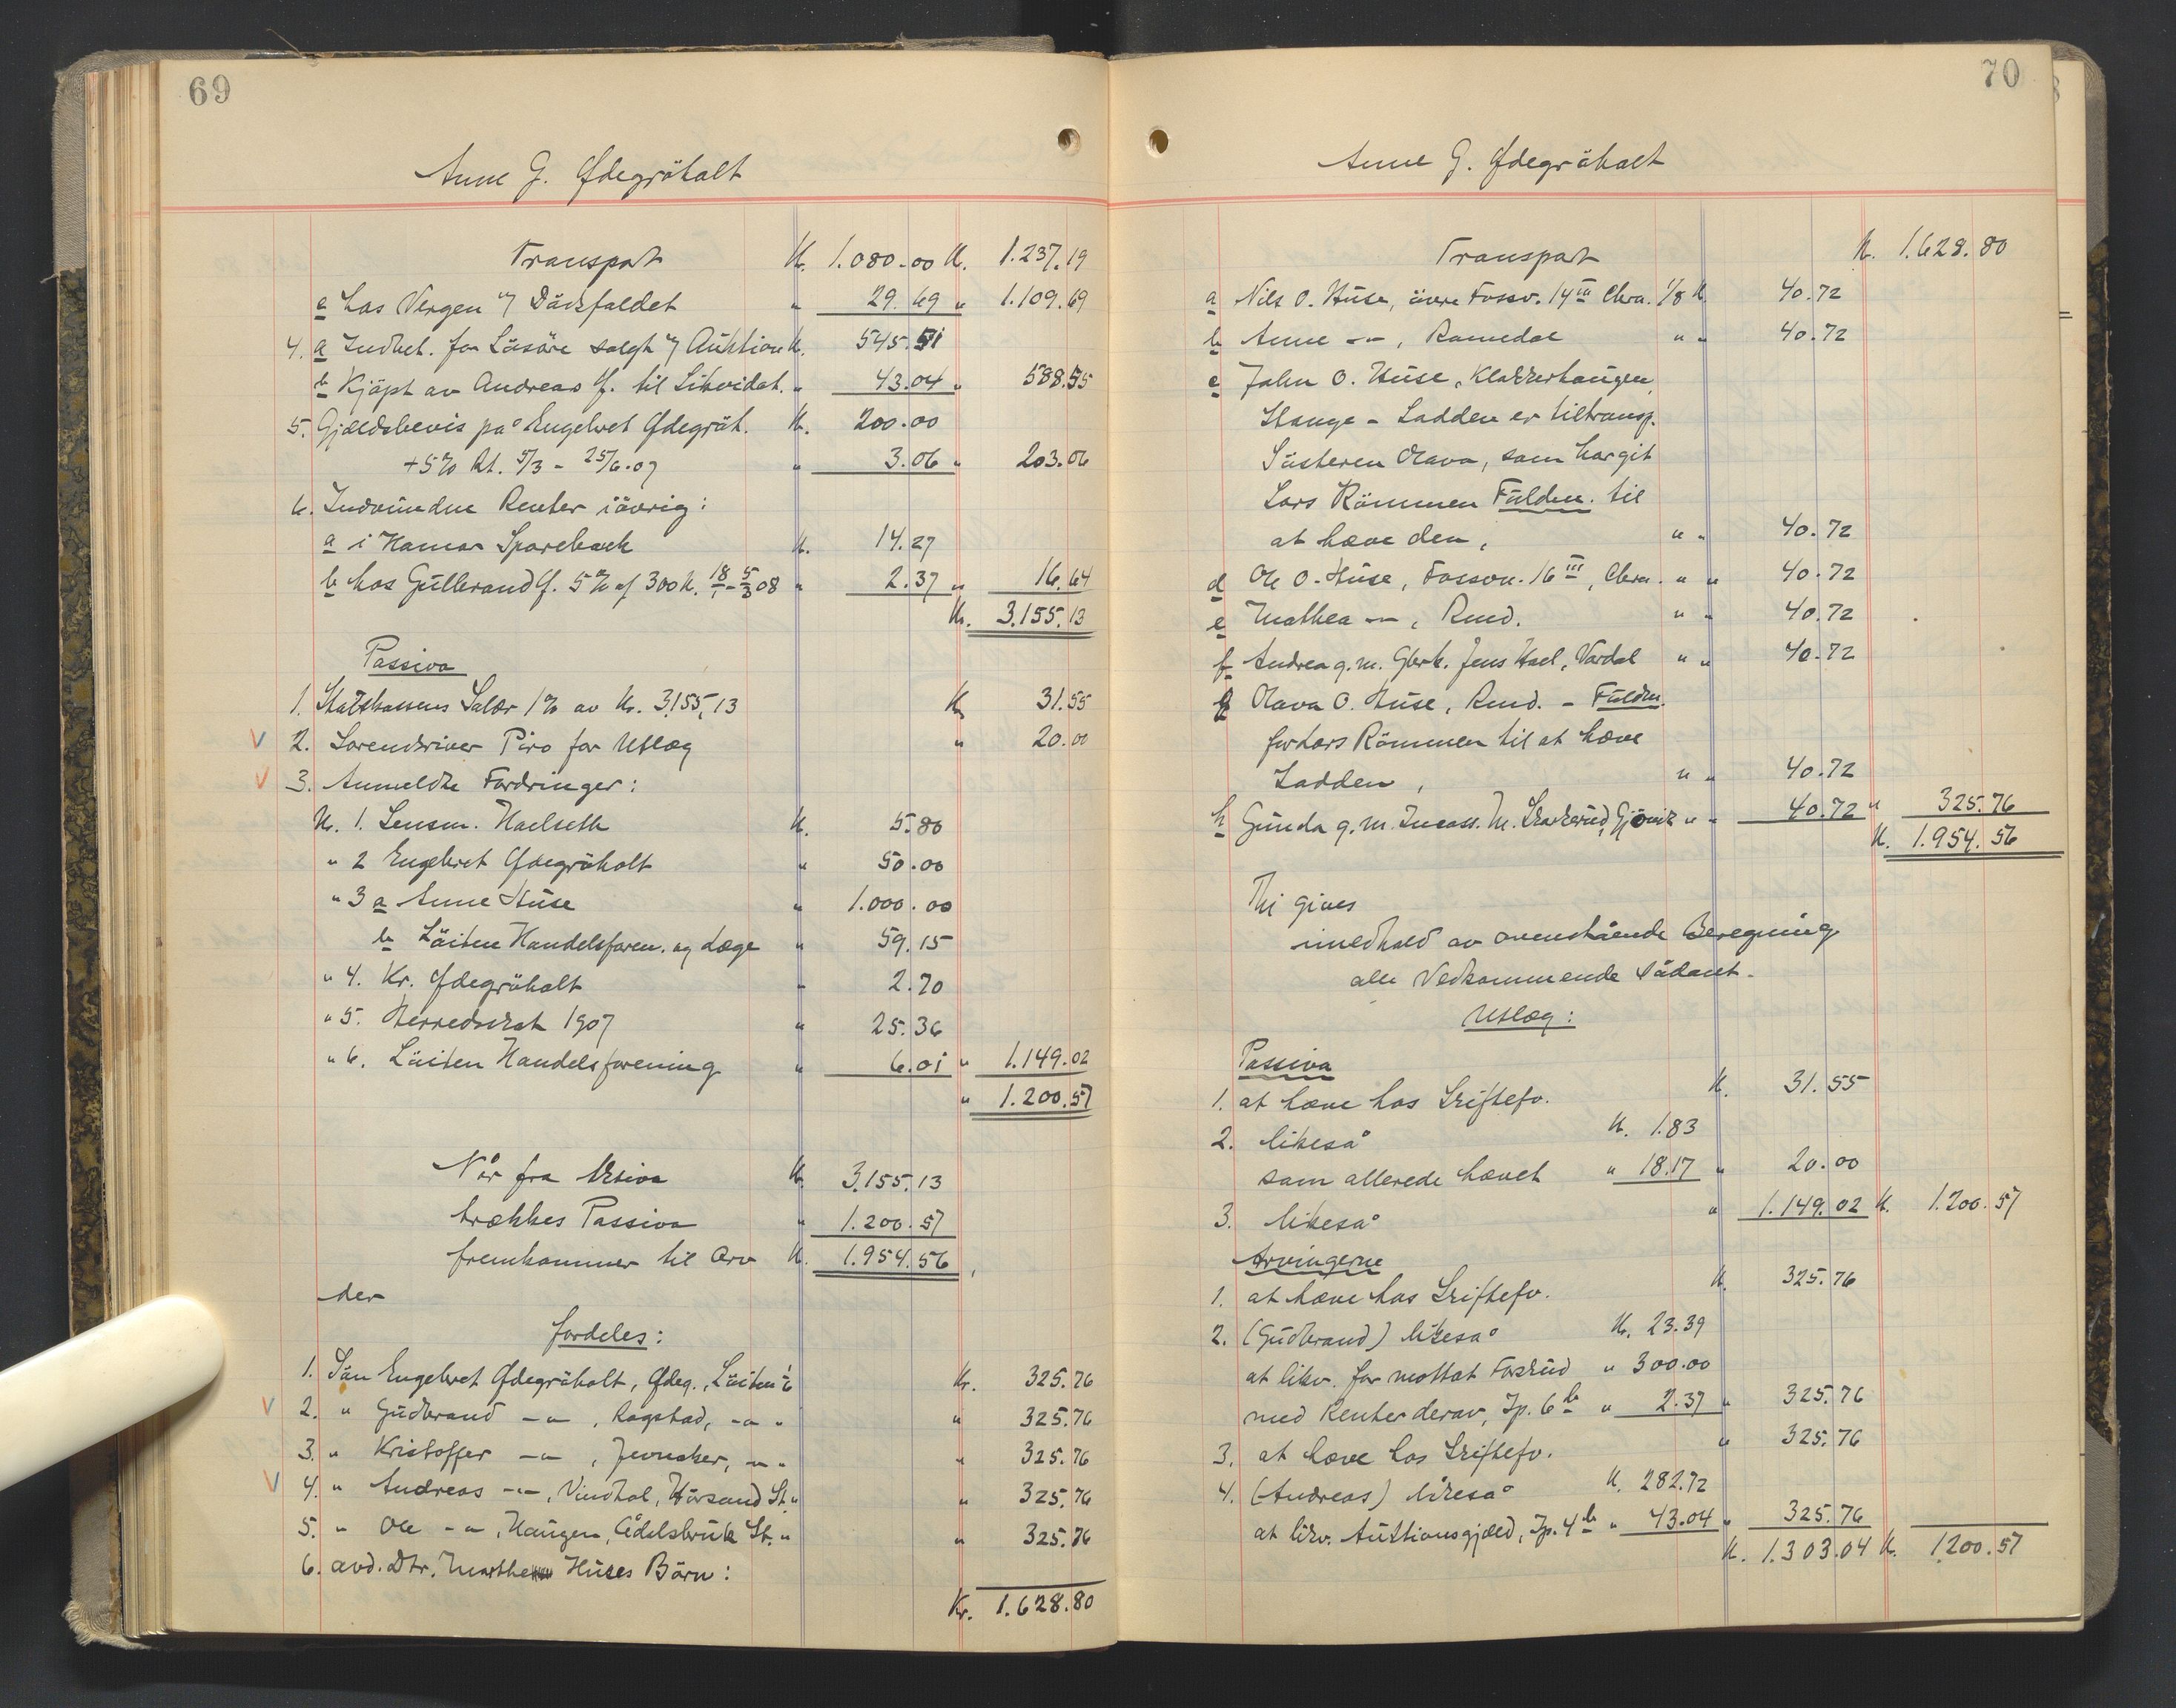 69
Anne G. Ødegråholt
Transport Kr. 1.080.00 Kr. 1.237.19
c hos Vergen 29.69 " 1.109.69
4. a Indbet. for Lösöre solgt v/ Auktion Kr. 545.51
b Kjöpt av Andreas Ø. til Likvidat. " 43.04 " 588.55
5. Gjældsbevis på Engebret Ødegråh. Kr. 200.00
+ 5% Rt. 5/3 - 25/6.07 " 3.06 " 203.06
6. Indvundne Renter iövrig:
a i Hamar Sparebank Kr. 14.27
b hos Gulbrand Ø. 5% af 300 K. 18/1 - 5/3 08 " 2.37 " 16.64
Kr. 3.155.13
Passiva
1. Statskassens Salær 1% av Kr. 3155,13 Kr. 31.55
2. Sorenskriver Piro for Utlæg " 20.00
3. Anmeldte Fordringer:
N. 1. Lensm. Kr. 5.80
" 2 Engebret Ødegråholt " 50.00
" 3 a Anne Huse " 1.000.00
b Löiten Handelsforen. og Læge " 59.15
" 4. Kr. Ødegråholt " 2.70
" 5. Herredsskat 1907 " 25.36
" 6. Löiten Handelsforening " 6.01 " 1.149.02
" 1.200.57
Når fra Aktiva Kr. 3.155.13
trækkes Passiva " 1.200.57
fremkommer til Arv Kr. 1.954.56,
der
fordeles:
1. Sön Engebret Ødegråholt, Ødeg., Löiten 1/6 Kr. 325.76
2. " Gudbrand -"-, Rogstad, -"- " " 325.76
3. " Kristoffer -"-, -"- " " 325.76
4. " Andreas -"-, Vindhol, St. " " 325.76
5. " Ole -"-, Haugen, Ådelsbruk St. " " 325.76
6. avd. Dtr. Marthe Huses Börn:
Kr. 1.628.80
70
Anne G. Ødegråholt
Transport Kr. 1.628.80
a Nils O. Huse, övre Fossv. 14 III Chra. 1/8 K. 40.72
b Anne -"-, Romedal " " 40.72
c John O. Huse, Klokkerhaugen,
Stange - Lodden er tiltransp.
Sösteren Olava, som har git
Lars Römmen Fuldm. til
at hæve den, " " 40.72
d Ole O. Huse, Fossv. 16 III, Chra. " " 40.72
e Mathea -"-, Rmd. " " 40.72
f Andrea g.m. Gbrk. Jens Hoel, Vardal " " 40.72
g Olava O. Huse, Rmd. - Fuldm.
for Lars Römmen til at hæve
Lodden, " " 40.72
h Gunda g.m. Incass. M. Gjövik " " 40.72 " 325.76
Kr. 1.954.56
Thi gives
i medhold av ovenstående Beregning
alle Vedkommende sådant
Utlæg:
Passiva
1. at hæve hos Skiftefv. Kr. 31.55
2. likeså Kr. 1.83
som allerede hævet " 18.17 " 20.00
3. likeså " 1.149.02 Kr. 1.200.57
Arvingerne
1. at hæve hos Skiftefv. Kr. 325.76
2. (Gudbrand) likeså Kr. 23.39
at likv. for mottat Forskud " 300.00
med Renter derav, Jp. 6 b " 2.37 " 325.76
3. at hæve hos Skiftefv. " 325.76
4. (Andreas) likeså Kr. 282.72
at likv. Auktionsgjæld, Jp. 4 b " 43.04 " 325.76
Kr. 1.303.04 Kr. 1200.57